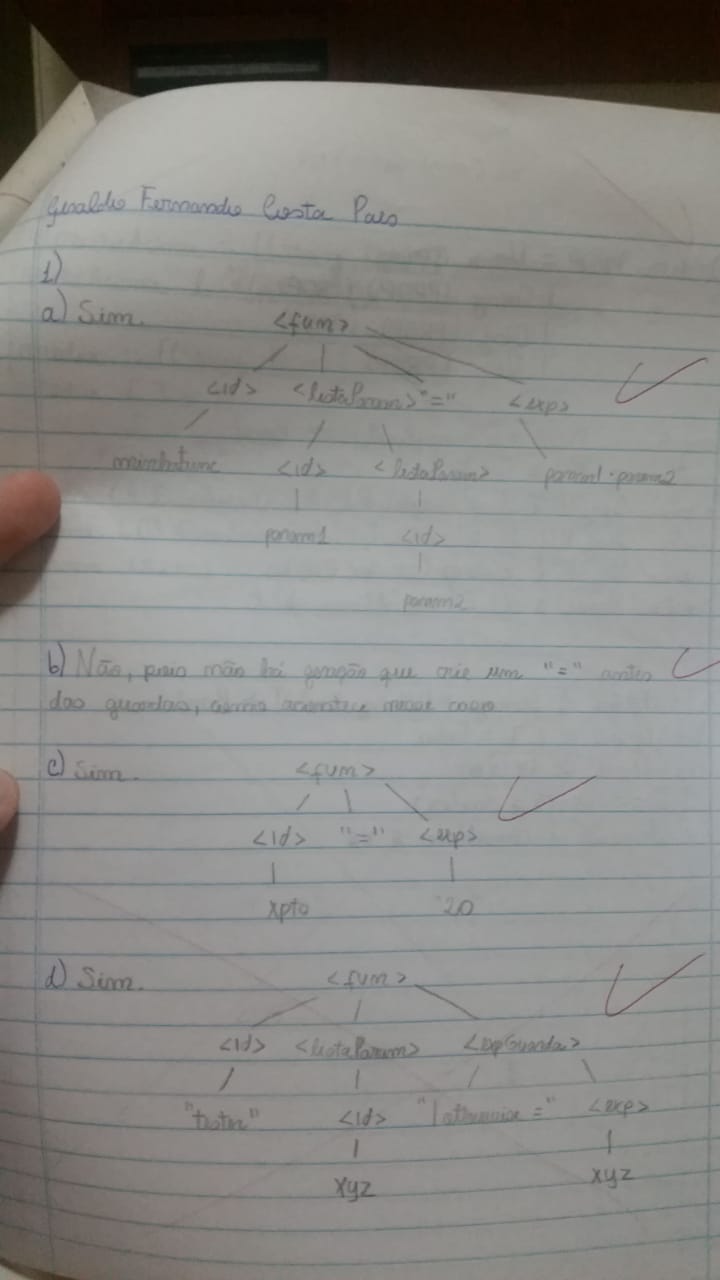 Geraldo Fernando Costa Pais
1)
a) Sim. <fun>
<id> <listaParam> "=" <exp>
minhafunc <id> <listaParam> param1 param2
param1 <id>
param2
b) Não, pois não há que crie um "=" antes
das guardas, como acontece nesse caso
c) Sim. <fun>
<id> "=" <exp>
xpto 20
d) Sim. <fun>
<id> <listaParam> <expGuarda>
<id> "|otherwise =" <exp>
xyz xyz